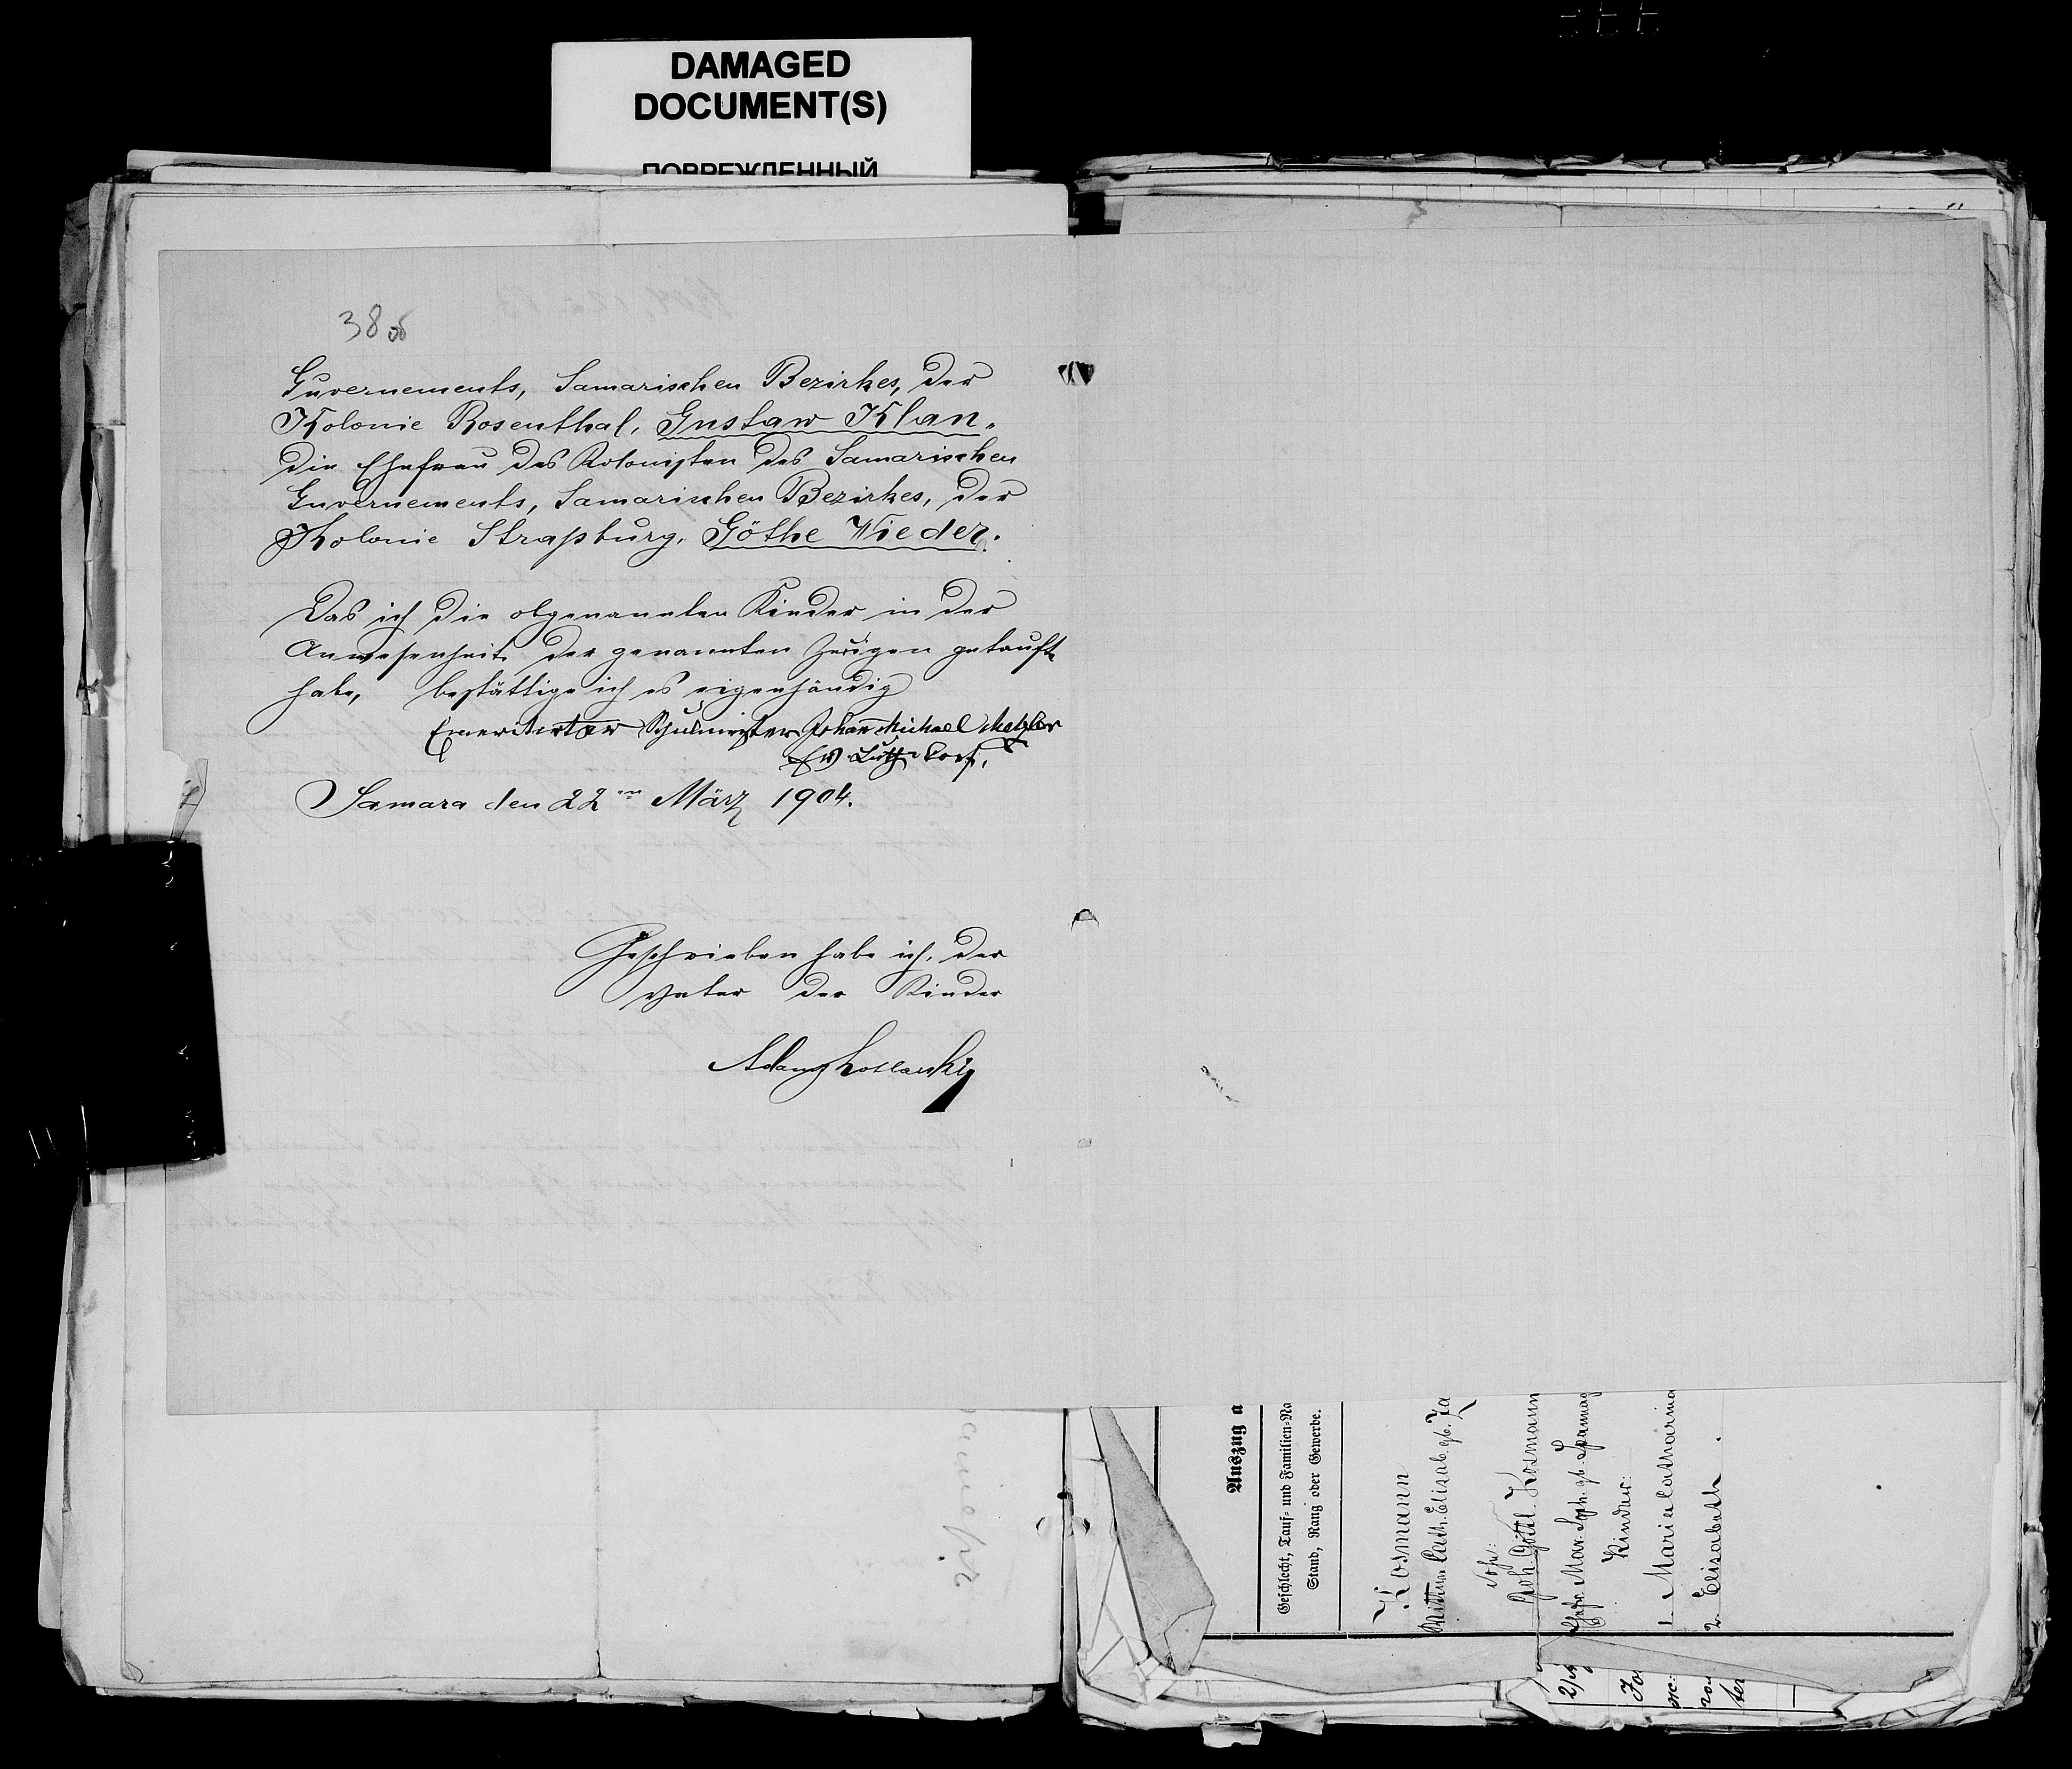 DAMAGED
DOCUMENT(S)
ПОВРЕЖДЕННЫЙ
38 об
Guvernements, Samarischen Bezirkes, der
Kolonie Rosenthal, Gustaw Klan.
die Ehefrau des Kolonisten des Samarischen
Guvernements, Samarischen Bezirkes, der
Kolonie Straßburg, Göthe Wieder.
Das ich die obgenannten Kinder in der
Anwesenheit der genannten Zeugen getauft
habe, bestättige ich es eigenhändig
Emeritirter Schulmeister Johann Michael Metzler
Ev Luth
Samara den 22ten März 1904.
Geschrieben habe ich, der
Vater der Kinder
Adam
Auszug a
Geschlecht, Tauf- und Familien-Na
Stand, Rang oder Gewerbe.
Kosmann
Wittwe Cath. Elisab. gb. Za
Sohn:
Joh. Gottl. Kosmann
Ehefr. Mar. Soph. gb.
Kinder:
1. Maria Catharina
2. Elisabeth